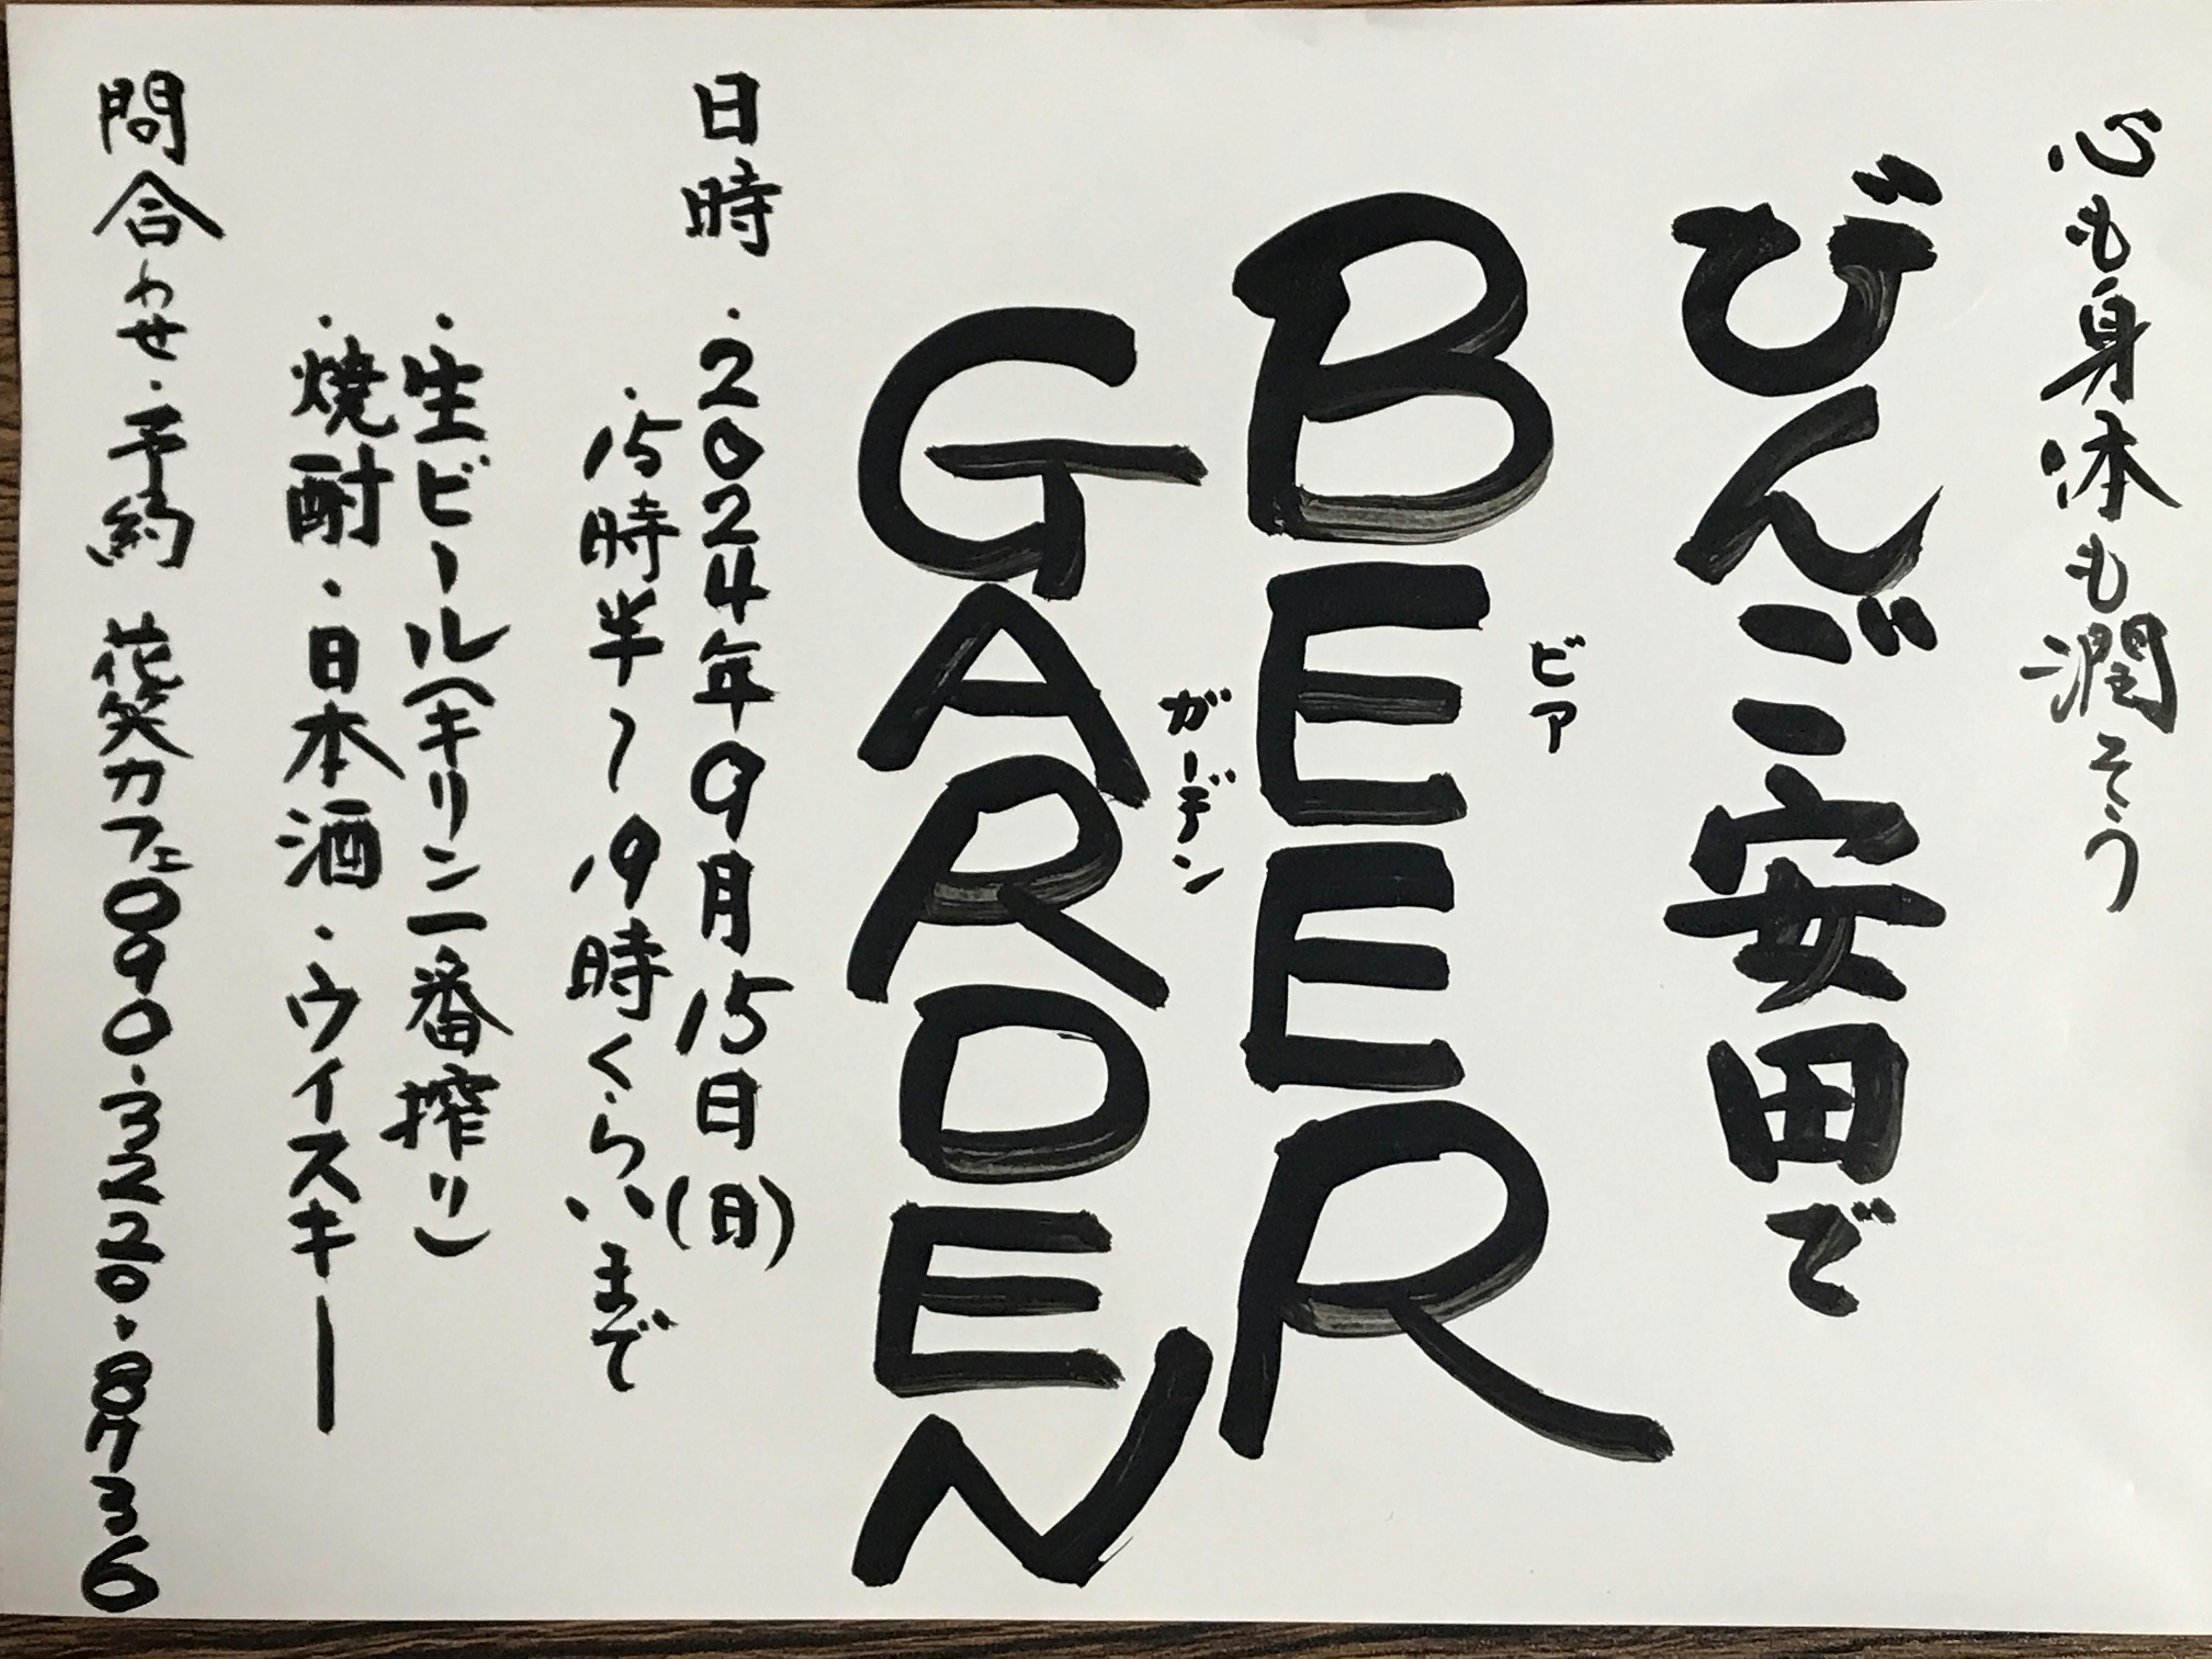 心も身体も潤そう
びんご安田で
ビア
BEER
ガーデン
GARDEN
日時・2024年9月15日(日)
・15時半〜19時くらいまで
・生ビール(キリン一番搾り)
・焼酎・日本酒・ウイスキー
問合わせ・予約 花笑カフェ090.3220.8736